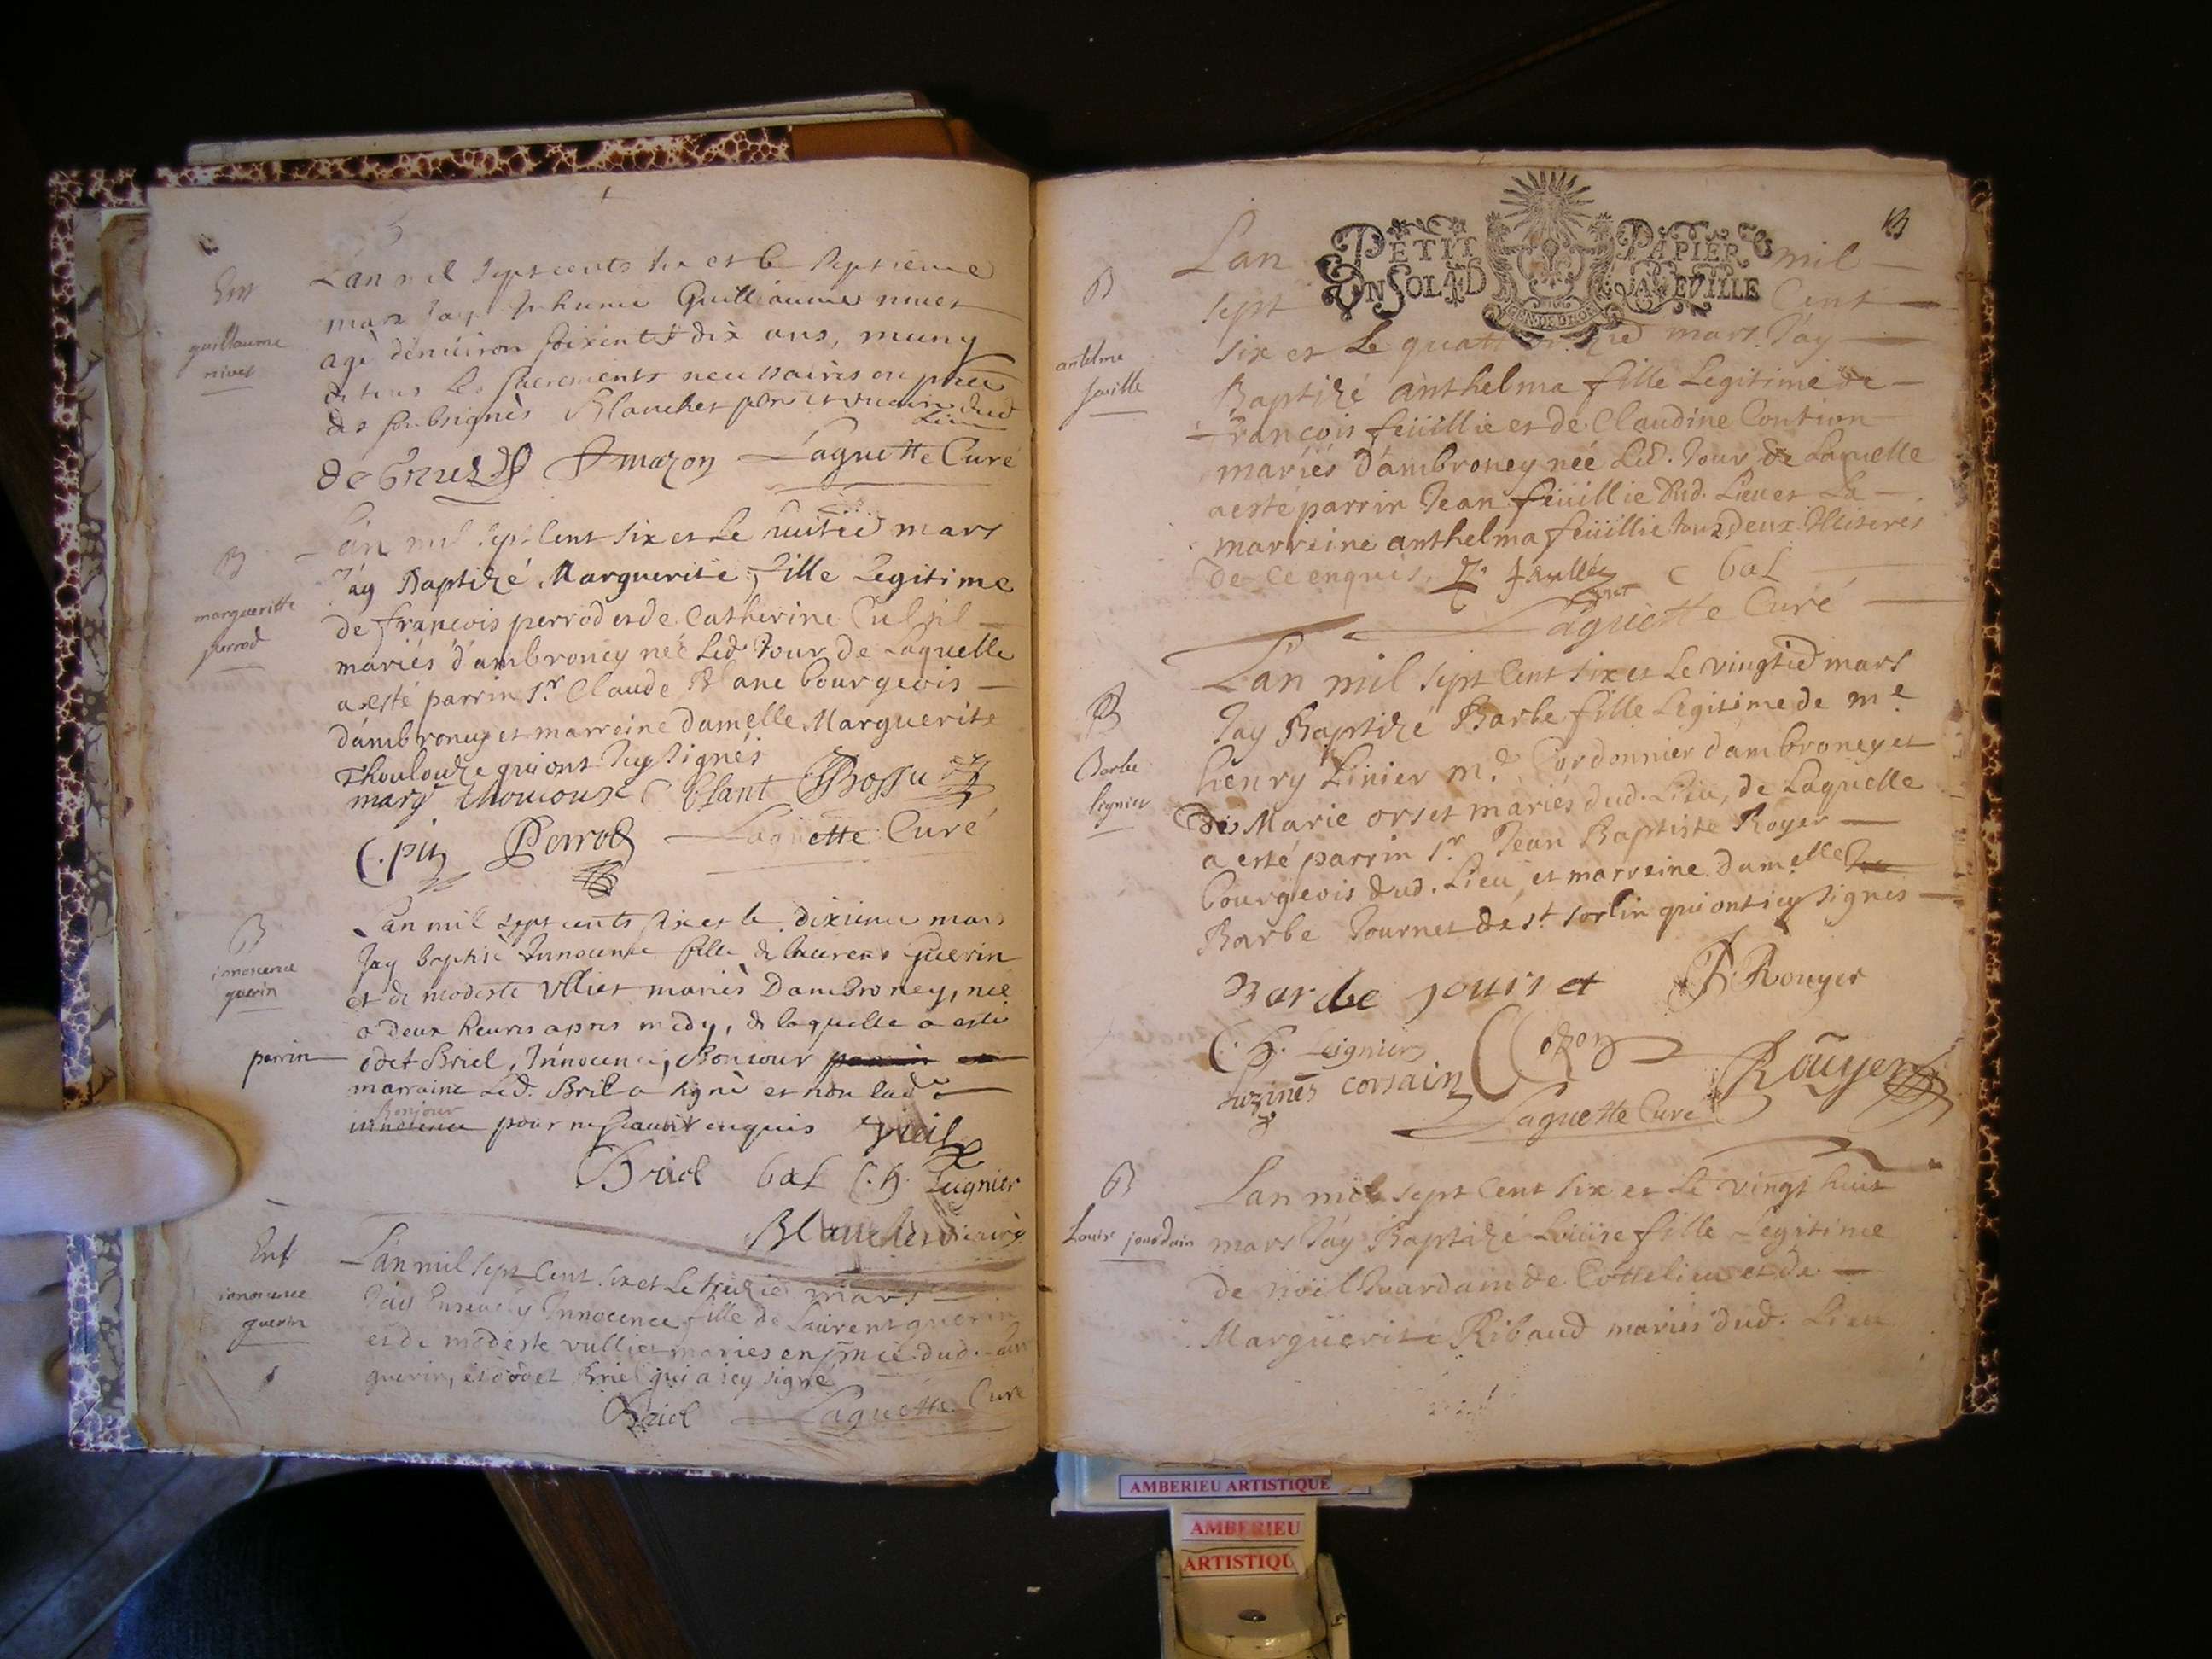 Ent
guillaume
nivet
Lan mil sept cents six et le septieme
mars Jay Inhumé Guilliaume nivet
agè dénuiron soixente & dix ans, muny
de tous les sacrements necessaires en pnce
des soubsignès Blanchet pbre et vicaire dud
Lieu
Amazon Laguette Curé
B
margueritte
perrod
Lan mil sept Cent six et Le huitie mars
Jáy Baptizé Marguerite fille Legitime
de françois perrod et de Catherine
mariés d'ambroney née Led. Jour de Laquelle
a esté parrin Sr. Claude Blanc bourgeois
d'ambroney et marreine damelle Marguerite
Thoulouze qui ont Icy signés
marg. thoulouse C blanc Bossu
C. pit Perrod Laguette Curé
B
innocence
guerin
Lan mil sept cents six et le dixieme mars
Jay baptisè Innocence fille de laurent Guerin
et de modeste Vlliet mariès Dambroney, née
a deux heures apres midy, de laquelle a estè
parrin
odet Briel, Innocence, Bonjour parrin et
marraine Led. Bril a signè et non lade
Bonjour
innocence pour ne scavoir enquis
Briel bal C. h. Lignier
Blanchet vicaire
Enf
innocence
guerin
Lan mil sept Cent six et Le treizie mars
Jáy Enseuely Innocence fille de Laurent guerin
et de modeste vulliet mariés en pnce dud.
guerin, et odet Briel qui a icy signé
Briel Laguette Curé
13
PETIT PAPIER
UN SOL 4 D LA FEUILLE
GEN DE DIJON
B
antelme
feuille
Lan mil
sept Cent
six et Le mars Jáy
Baptizé anthelma fille Legitime de
françois feüillie et de Claudine Contion
mariés d'ambroney née Led. Jour de Laquelle
a esté parrin Jean feüillie dud. Lieu et La
marreine anthelma feüillie tous deux Illiteres
de ce enquis. bal
Laguette Curé
B
Barbe
lignier
Lan mil sept Cent six et Le vingtie mars
Jay Baptizé Barbe fille Legitime de me
henry Linier me Cordonnier d'ambroney et
de Marie orset mariés dud. Lieu, de Laquelle
a esté parrin Sr Jean Baptiste Royer
bourgeois dud. Lieu, et marreine damelle
Barbe Journet de st sorlin qui ont icy signés
Barbe journet B. Rouyer
C. h. Lignier
corsain Rouyer
Laguette Curé
B
Louise jourdain
Lan mil sept Cent six et Le vingt huit
mars Jáy Baptizé Loüise fille Legitime
de noël Jourdain de Cottelieu et de
Margüerite Ribaud mariés dud. Lieu
AMBERIEU ARTISTIQUE
AMBERIEU
ARTISTIQU